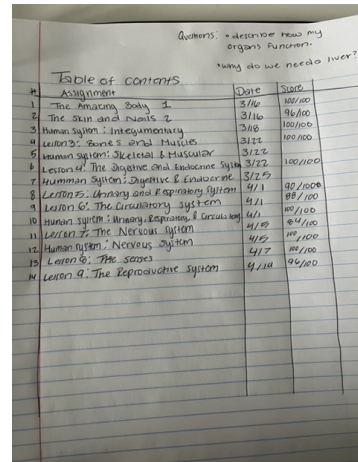 Questions: • describe how my
organs function.
• why do we need a liver?
Table of contents
# Assignment Date Score
1 The Amazing Body 1 3/16 100/100
2 The Skin and Nails 2 3/16 96/100
3 Human system: Integumentary 3/18 100/100
4 Lesson 3: Bones and Muscles 3/22 100/100
5 Human system: Skeletal & Muscular 3/22
6 Lesson 4: The Digestive and Endocrine System 3/22 100/100
7 Humman System: Digestive & Endocrine 3/25
8 Lesson 5: Urinary and Respiratory System 4/1 90/100
9 Lesson 6: The Circulatory system 4/1 88/100
10 Human system: Urinary, Respiratory, & Circulatory 4/1 100/100
11 Lesson 7: The Nervous System 4/5 84/100
12 Human System: Nervous System 4/5 100/100
13 Lesson 8: The senses 4/7 100/100
14 Lesson 9: The Reproductive System 4/14 96/100